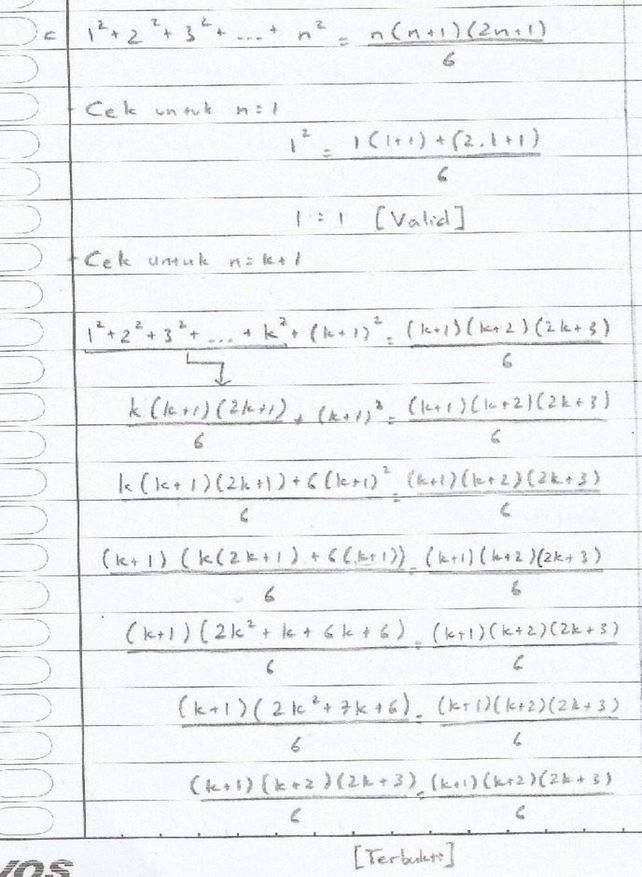 c 1² + 2² + 3² + ... + n² = n(n+1)(2n+1) / 6
- Cek untuk n=1
1² = 1(1+1) + (2.1+1) / 6
1 = 1 [Valid]
- Cek untuk n=k+1
1² + 2² + 3² + ... + k² + (k+1)² = (k+1)(k+2)(2k+3) / 6
k(k+1)(2k+1) / 6 + (k+1)² = (k+1)(k+2)(2k+3) / 6
k(k+1)(2k+1) + 6(k+1)² / 6 = (k+1)(k+2)(2k+3) / 6
(k+1)(k(2k+1) + 6(k+1)) / 6 = (k+1)(k+2)(2k+3) / 6
(k+1)(2k² + k + 6k + 6) / 6 = (k+1)(k+2)(2k+3) / 6
(k+1)(2k² + 7k + 6) / 6 = (k+1)(k+2)(2k+3) / 6
(k+1)(k+2)(2k+3) / 6 = (k+1)(k+2)(2k+3) / 6
[Terbukti]